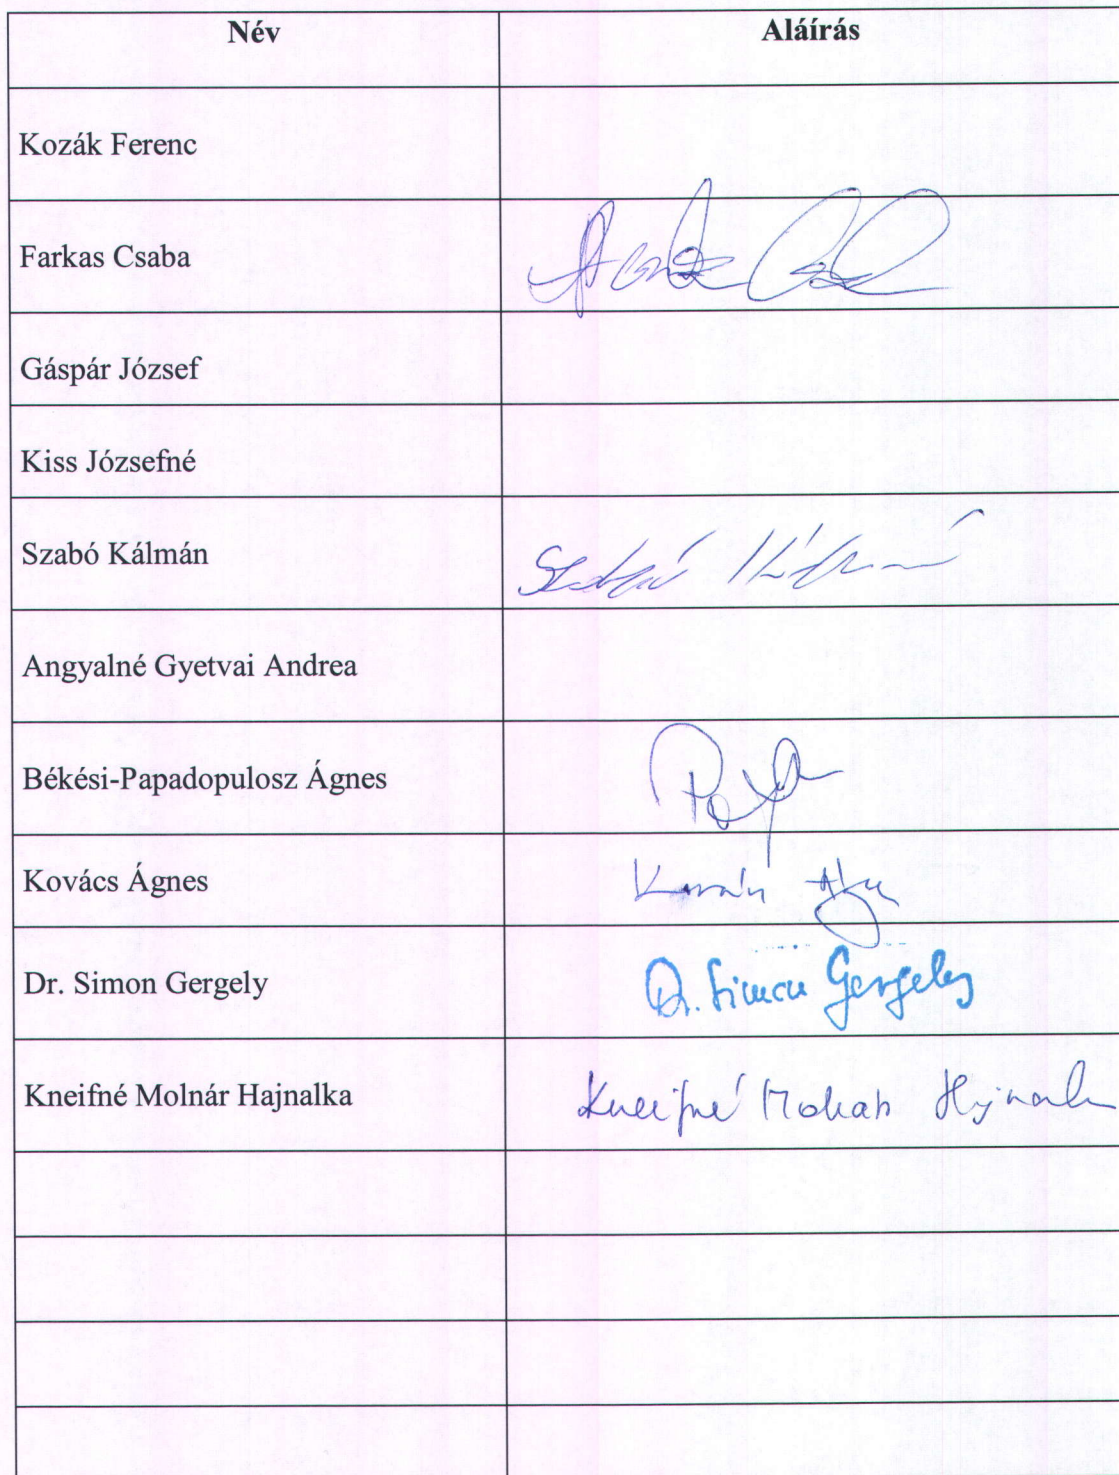 Név Aláírás
Kozák Ferenc
Farkas Csaba
Gáspár József
Kiss Józsefné
Szabó Kálmán Szabó Kálmán
Angyalné Gyetvai Andrea
Békési-Papadopulosz Ágnes
Kovács Ágnes
Dr. Simon Gergely Dr. Simon Gergely
Kneifné Molnár Hajnalka Kneifné Molnár Hajnalka